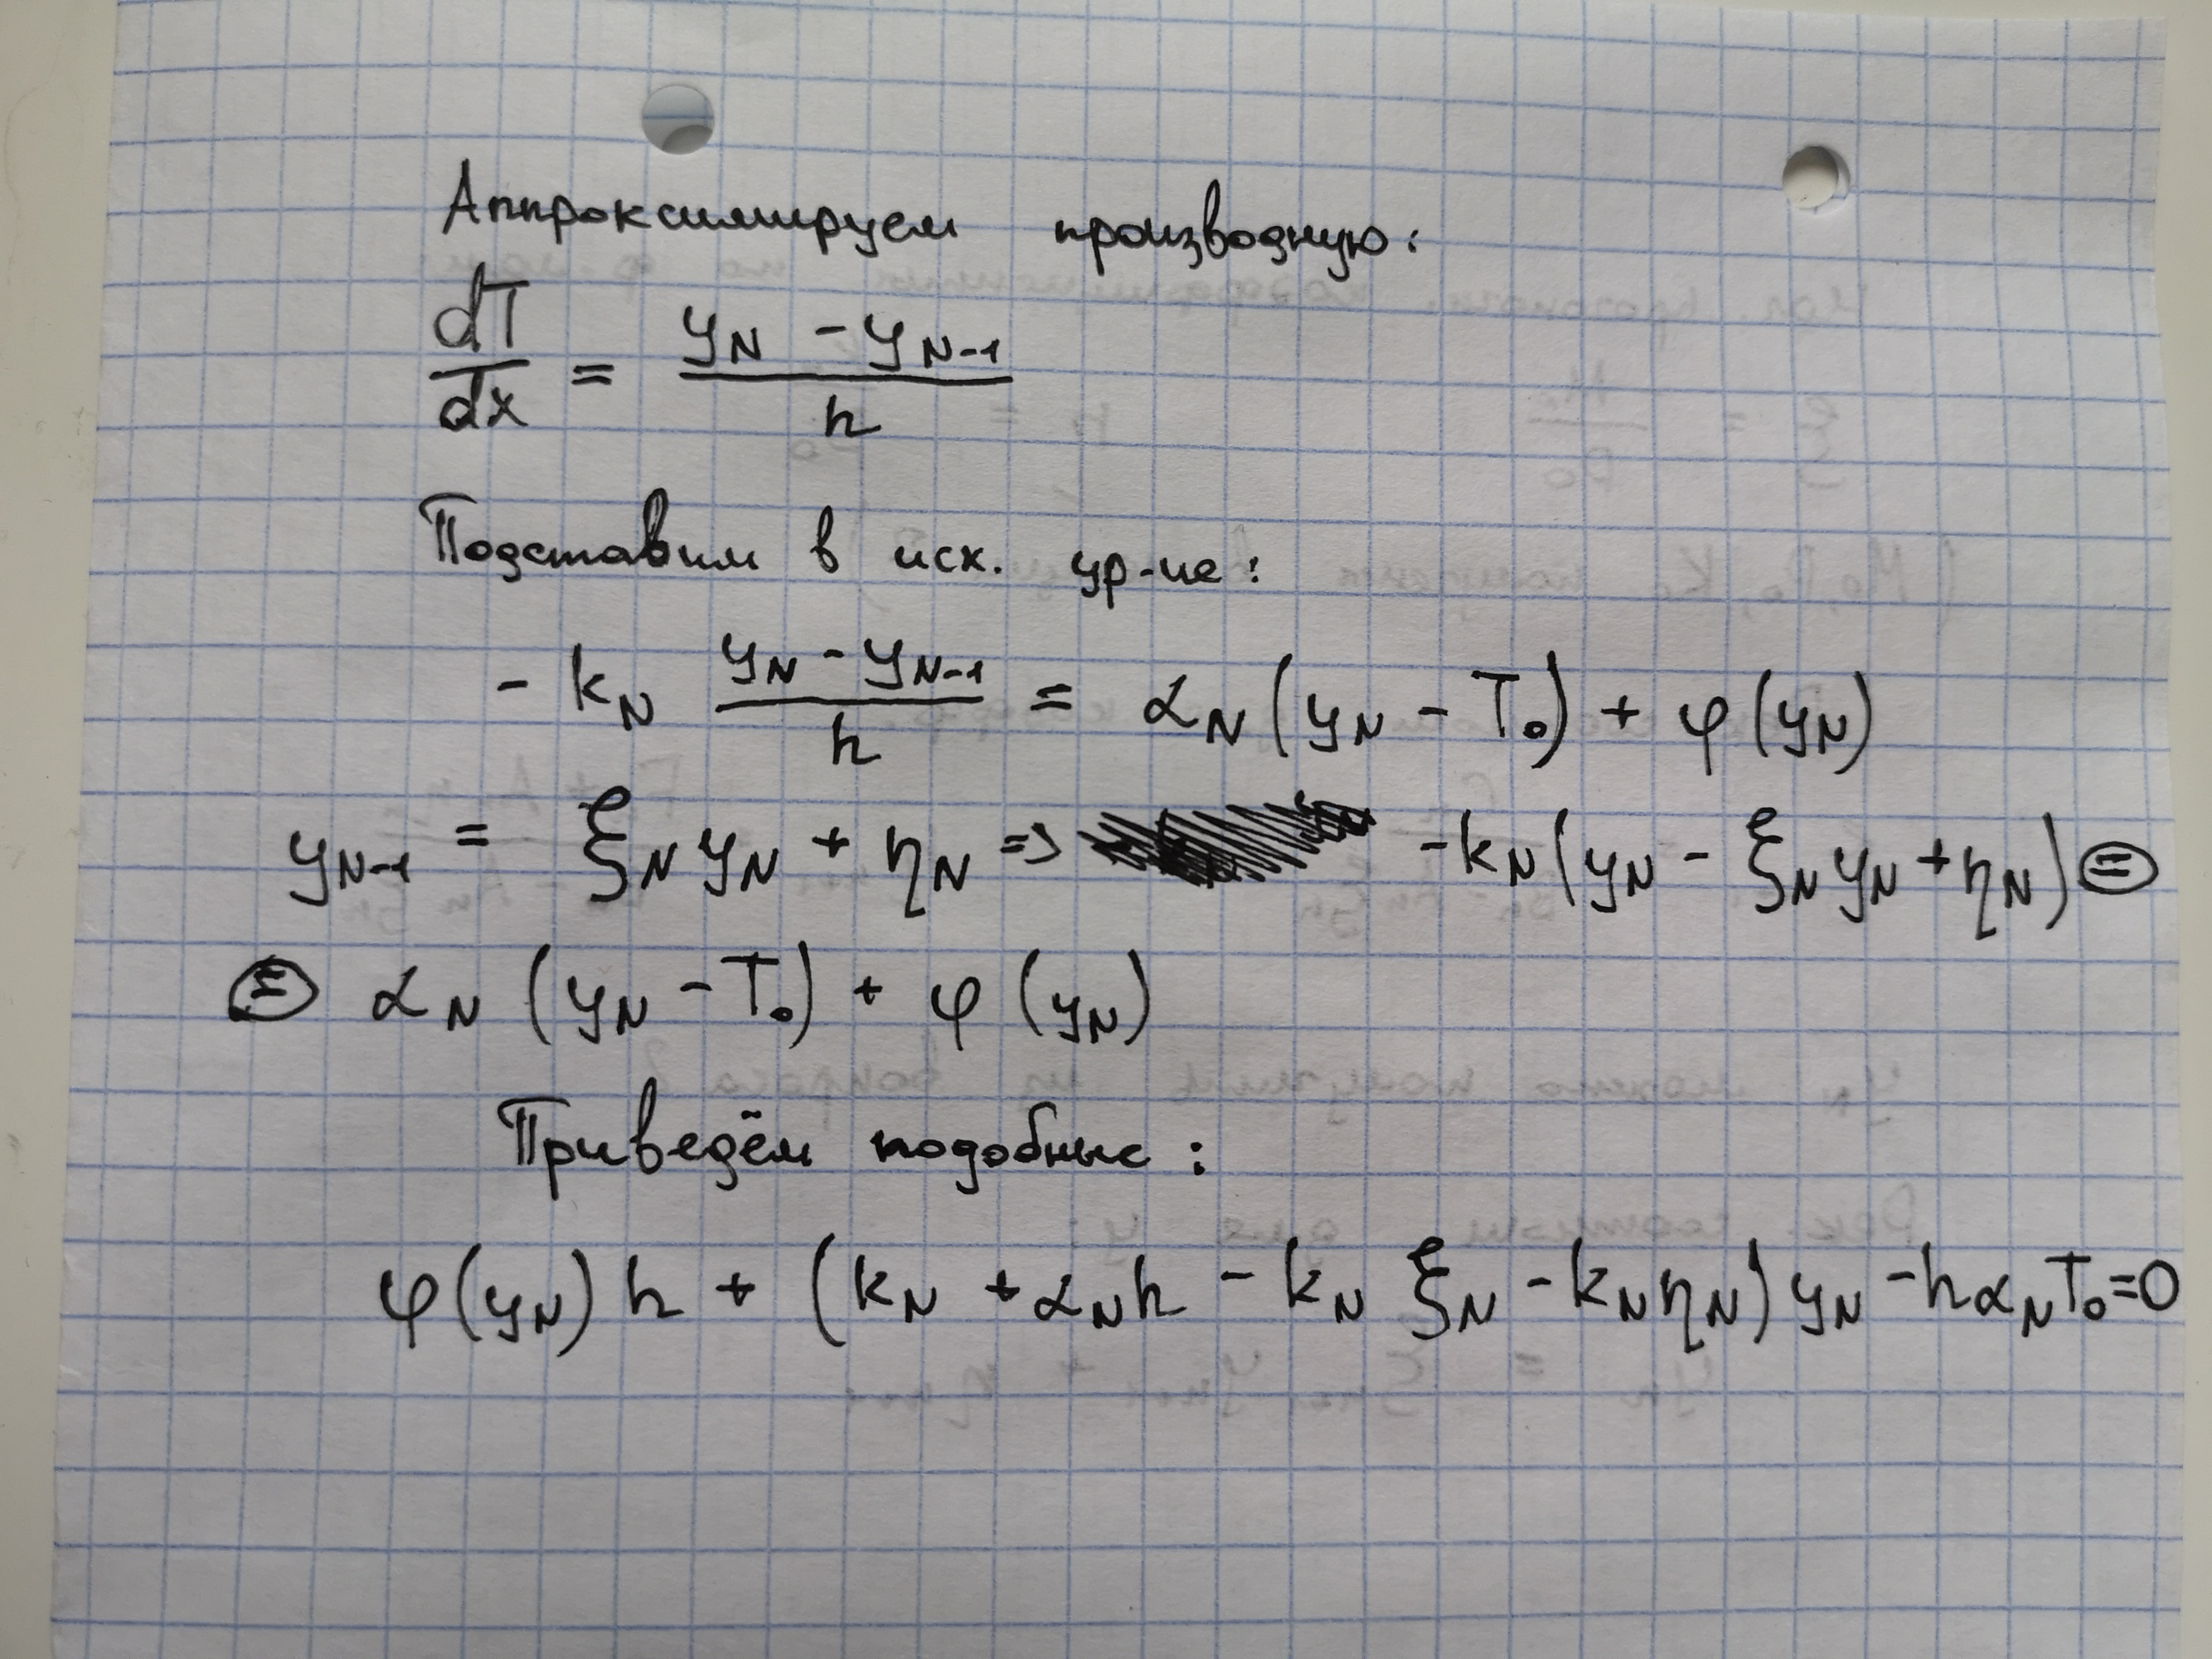 Аппроксимируем производную:
dT/dx = (y_N - y_{N-1})/h
Подставим в исх. ур-ие:
- k_N (y_N - y_{N-1})/h = α_N (y_N - T_0) + φ(y_N)
y_{N-1} = ξ_N y_N + η_N => -k_N (y_N - ξ_N y_N + η_N) ⊜
⊜ α_N (y_N - T_0) + φ (y_N)
Приведём подобные:
φ(y_N) h + (k_N + α_N h - k_N ξ_N - k_N η_N) y_N - h α_N T_0 = 0